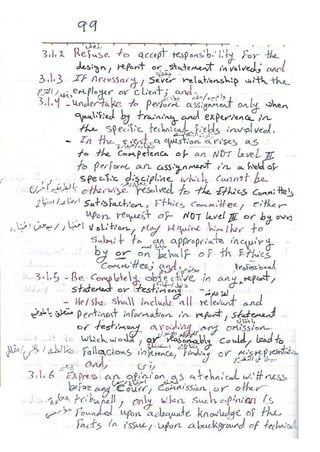 99
3.1.2 Refuse to accept responsibility for the
design, report or statement involved; and
3.1.3 If necessary, sever relationship with the
employer or client; and
3.1.4 - undertake to perform assignment only when
qualified by training and experience in
the specific technical fields involved.
- In the event a question arises as
to the Competence of an NDT level III
to perform an assignment in a field of
specific discipline which cannot be
otherwise resolved to the Ethics Committee's
Satisfaction, Ethics Committee, either
upon request of NDT level III or by own
Valition, May require him/her to
Submit to an appropriate inquiry
by or on behalf of th Ethics
Committee; and,
3.1.5 - Be Completely objective in any Professional report,
statement or testimony
- He/She shall include all relevant and
pertinent information in report, statement
or testimony avoiding any omission
which would, or reasonably could, lead to
fallacious inference, finding or misrepresentation
and,
3.1.6 Express an opinion as a tehnical wittness
before any Court, Commission, or other
tribunell, only when such opinion is
Founded upon adequate knowledge of the
facts in issue, upon a buckground of technical